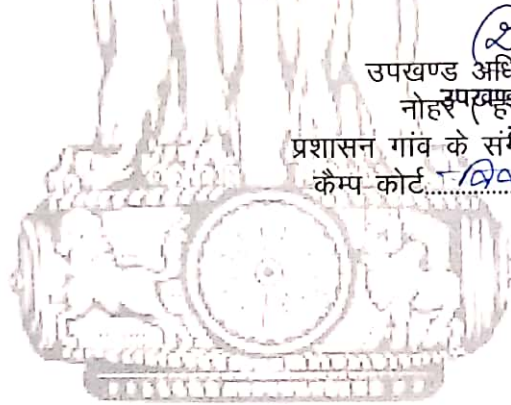 उपखण्ड अधि
उपखण्ड
नोहर (ह
प्रशासन गांव के सं
कैम्प कोर्ट